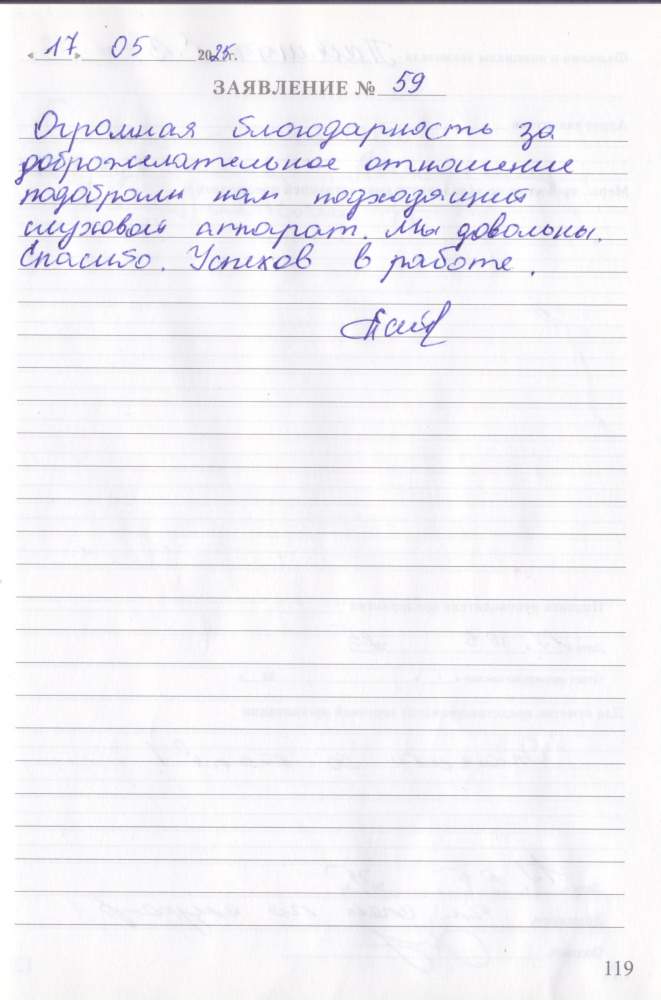 « 17 » 05 2025г.
ЗАЯВЛЕНИЕ № 59
Огромная благодарность за
доброжелательное отношение
подобрали нам подходящий
слуховой аппарат. Мы довольны.
Спасибо. Успехов в работе.
119